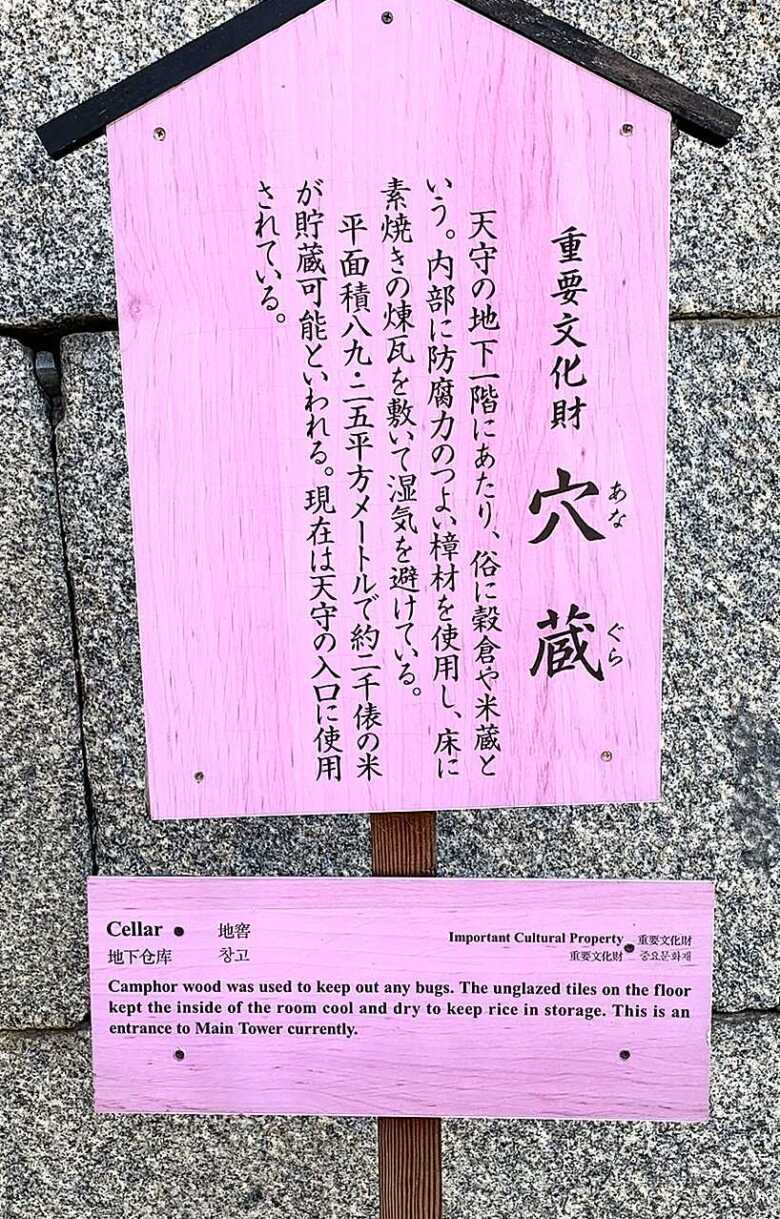 重要文化財 穴蔵
あなぐら
天守の地下一階にあたり、俗に穀倉や米蔵と
いう。内部に防腐力のつよい樟材を使用し、床に
素焼きの煉瓦を敷いて湿気を避けている。
平面積八九・二五平方メートルで約二千俵の米
が貯蔵可能といわれる。現在は天守の入口に使用
されている。
Cellar ● 地窖
地下仓库 창고
Important Cultural Property 重要文化財
重要文化財 중요문화재
Camphor wood was used to keep out any bugs. The unglazed tiles on the floor
kept the inside of the room cool and dry to keep rice in storage. This is an
entrance to Main Tower currently.